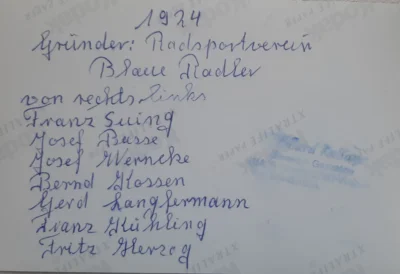 1924
Gründer: Radsportverein
Blaue Radler
von rechts links
Franz Suing
Josef Busse
Josef Werncke
Bernd Kossen
Gerd Langfermann
Franz Kühling
Fritz Herzog